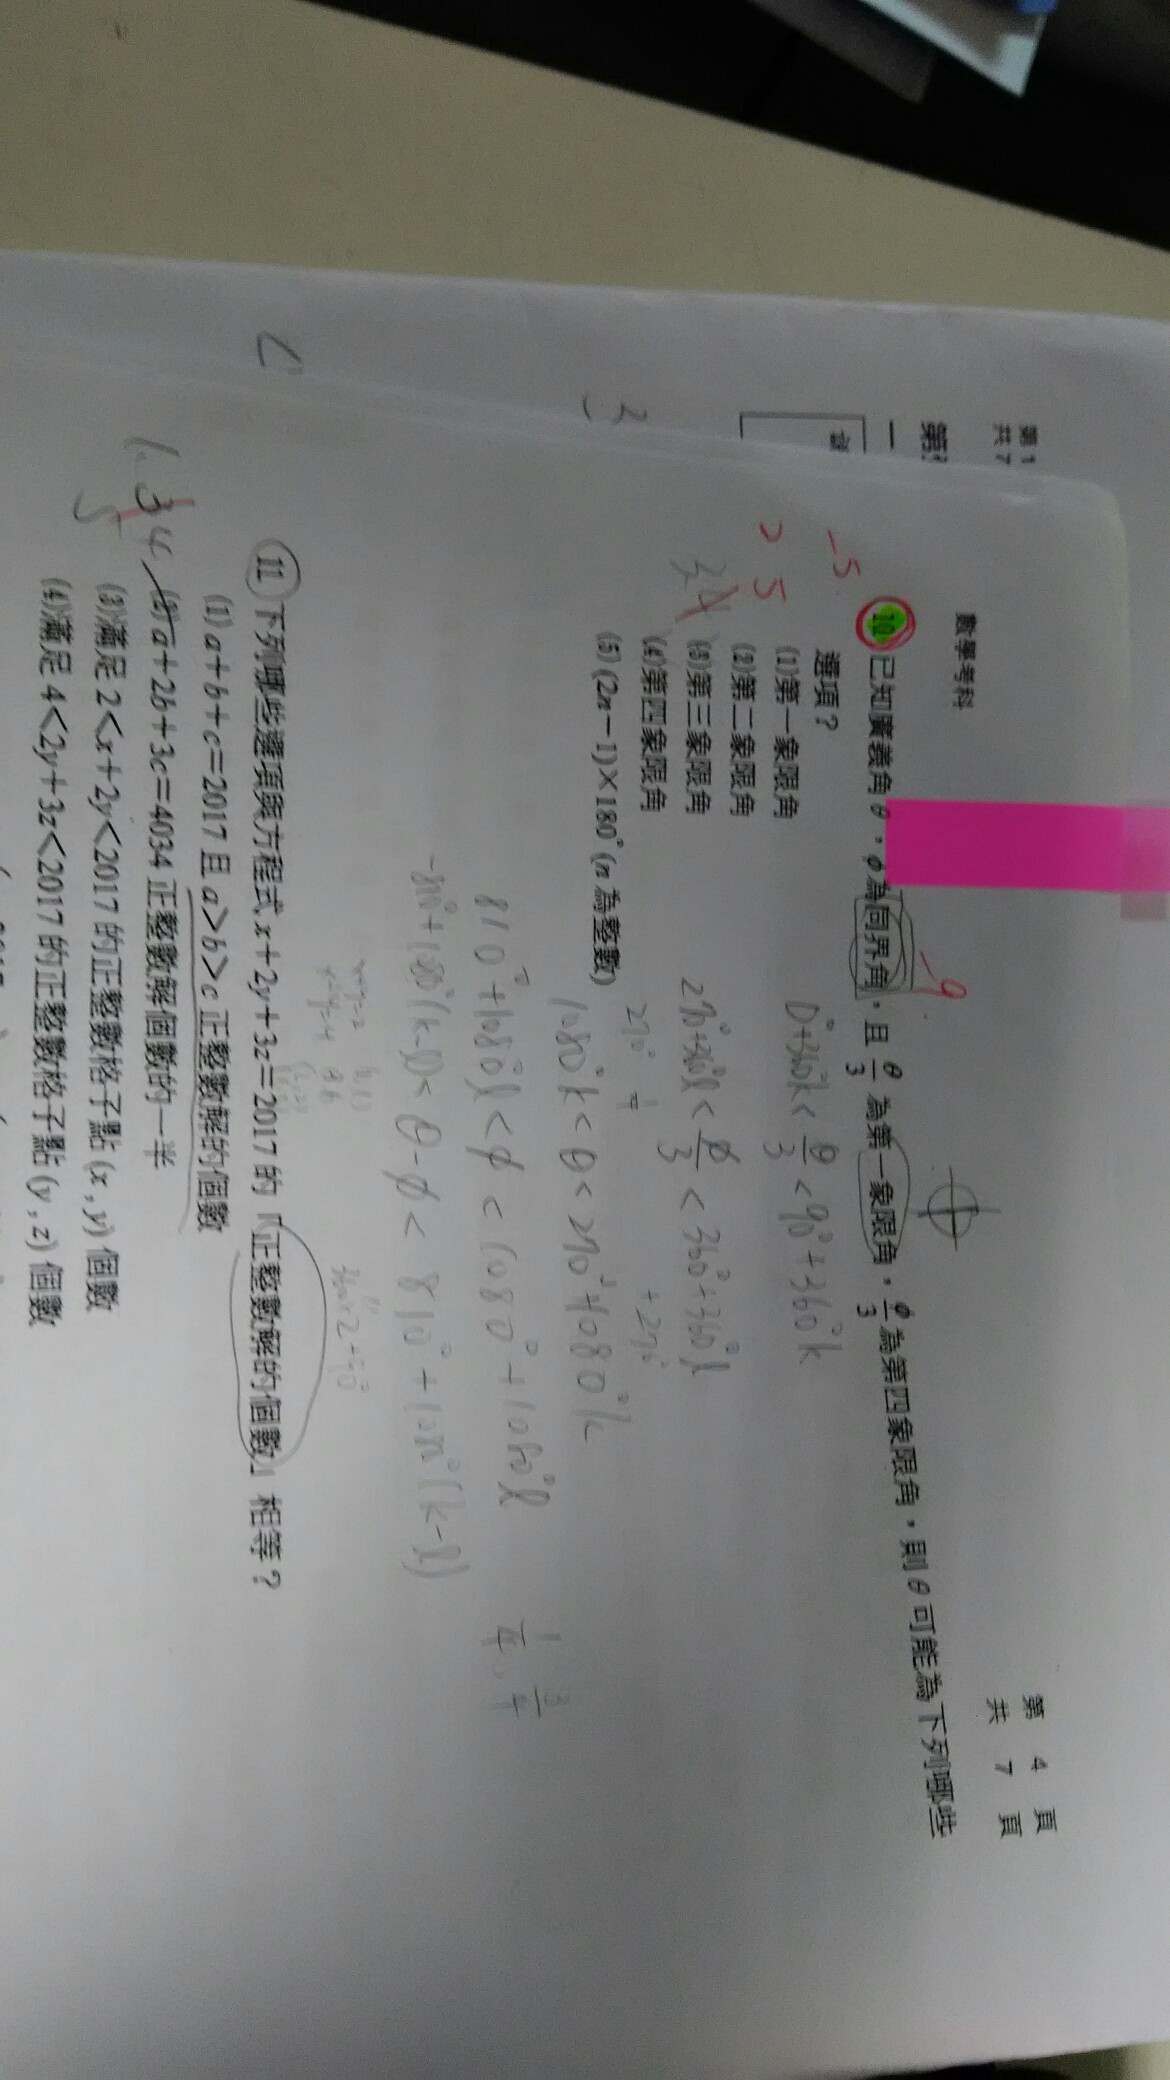 第 4 頁
共 7 頁
第 1
共 7
數學考科
-9
-5
10 已知廣義角 θ，φ 為同界角，且 θ/3 為第一象限角，φ/3 為第四象限角，則 θ 可能為下列哪些
選項？
(1)第一象限角
(2)第二象限角
(3)第三象限角
(4)第四象限角
(5) (2n－1)×180° (n 為整數)
0°+360°k < θ/3 < 90°+360°k
270°+360°l < φ/3 < 360°+360°l
1080°k < θ < 270°+1080°k
810°+1080°l < φ < 1080°+1080°l
11 下列哪些選項與方程式 x＋2y＋3z＝2017 的「正整數解的個數」相等？
(1) a＋b＋c＝2017 且 a＞b＞c 正整數解的個數
(2) a＋2b＋3c＝4034 正整數解個數的一半
(3)滿足 2＜x＋2y＜2017 的正整數格子點 (x , y) 個數
(4)滿足 4＜2y＋3z＜2017 的正整數格子點 (y , z) 個數